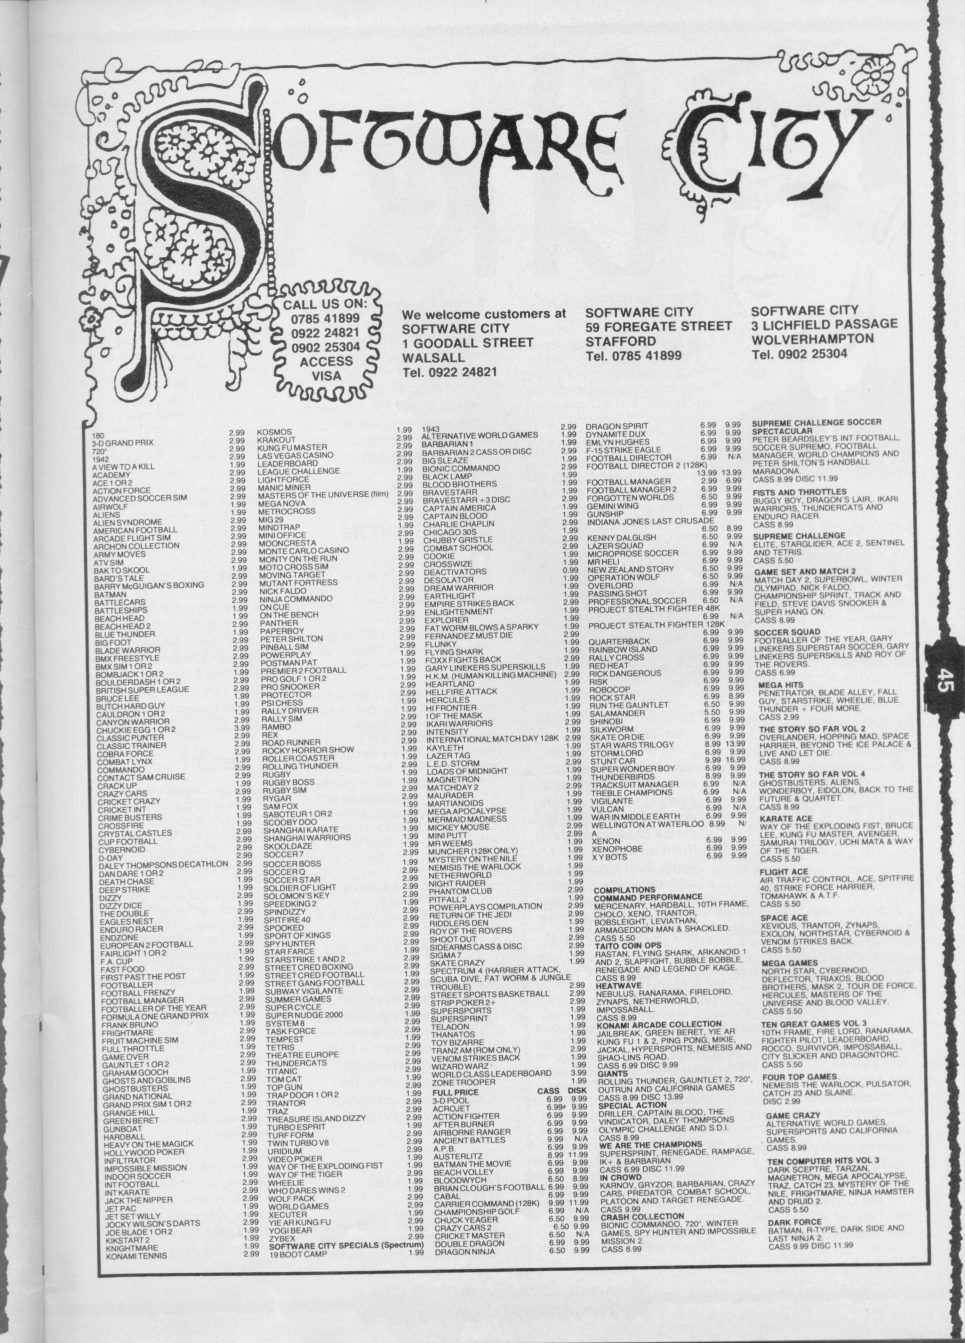 SOFTWARE CITY
CALL US ON:
0785 41899
0922 24821
0902 25304
ACCESS
VISA
We welcome customers at
SOFTWARE CITY
1 GOODALL STREET
WALSALL
Tel. 0922 24821
SOFTWARE CITY
59 FOREGATE STREET
STAFFORD
Tel. 0785 41899
SOFTWARE CITY
3 LICHFIELD PASSAGE
WOLVERHAMPTON
Tel. 0902 25304
180 2.99
3-D GRAND PRIX 2.99
720° 2.99
1942 2.99
A VIEW TO A KILL 1.99
ACADEMY 2.99
ACE 1 OR 2 2.99
ACTION FORCE 2.99
ADVANCED SOCCER SIM 2.99
AIRWOLF 1.99
ALIENS 1.99
ALIEN SYNDROME 2.99
AMERICAN FOOTBALL 2.99
ARCADE FLIGHT SIM 2.99
ARCHON COLLECTION 2.99
ARMY MOVES 2.99
ATV SIM 2.99
BAK TO SKOOL 1.99
BARD'S TALE 2.99
BARRY McGUIGAN'S BOXING 2.99
BATMAN 2.99
BATTLECARS 2.99
BATTLESHIPS 1.99
BEACH HEAD 1.99
BEACH HEAD 2 2.99
BLUE THUNDER 1.99
BIG FOOT 2.99
BLADE WARRIOR 2.99
BMX FREESTYLE 2.99
BMX SIM 1 OR 2 2.99
BOMBJACK 1 OR 2 1.99
BOULDERDASH 1 OR 2
BRITISH SUPER LEAGUE
BRUCE LEE
BUTCH HARD GUY
CAULDRON 1 OR 2
CANYON WARRIOR
CHUCKIE EGG 1 OR 2
CLASSIC PUNTER
CLASSIC TRAINER
COBRA FORCE
COMBAT LYNX
COMMANDO
CONTACT SAM CRUISE
CRACK UP
CRAZY CARS
CRICKET CRAZY
CRICKET INT
CRIME BUSTERS
CROSSFIRE
CRYSTAL CASTLES
CUP FOOTBALL
CYBERNOID
D-DAY
DALEY THOMPSONS DECATHLON
DAN DARE 1 OR 2
DEATH CHASE
DEEP STRIKE
DIZZY
DIZZY DICE
THE DOUBLE
EAGLES NEST
ENDURO RACER
ENDZONE
EUROPEAN 2 FOOTBALL
FAIRLIGHT 1 OR 2
F.A. CUP
FAST FOOD
FIRST PAST THE POST
FOOTBALLER
FOOTBALL FRENZY
FOOTBALL MANAGER
FOOTBALLER OF THE YEAR
FORMULA ONE GRAND PRIX
FRANK BRUNO
FRIGHTMARE
FRUIT MACHINE SIM
FULL THROTTLE
GAME OVER
GAUNTLET 1 OR 2
GRAHAM GOOCH
GHOSTS AND GOBLINS
GHOSTBUSTERS
GRAND NATIONAL
GRAND PRIX SIM 1 OR 2
GRANGE HILL
GREEN BERET
GUNBOAT
HARDBALL
HEAVY ON THE MAGICK
HOLLYWOOD POKER
INFILTRATOR
IMPOSSIBLE MISSION
INDOOR SOCCER
INT FOOTBALL
INT KARATE
JACK THE NIPPER
JET PAC
JET SET WILLY
JOCKY WILSON'S DARTS
JOE BLADE 1 OR 2
KIKSTART 2
KNIGHTMARE 1.99
KONAMI TENNIS 2.99
KOSMOS 1.99
KRAKOUT 2.99
KUNG FU MASTER 2.99
LAS VEGAS CASINO 2.99
LEADERBOARD
LEAGUE CHALLENGE
LIGHTFORCE
MANIC MINER
MASTERS OF THE UNIVERSE (film)
MEGA NOVA
METROCROSS
MIG 29
MINDTRAP
MINI OFFICE
MOONCRESTA
MONTE CARLO CASINO
MONTY ON THE RUN
MOTO CROSS SIM
MOVING TARGET
MUTANT FORTRESS
NICK FALDO
NINJA COMMANDO
ON CUE
ON THE BENCH
PANTHER
PAPERBOY
PETER SHILTON
PINBALL SIM
POWERPLAY
POSTMAN PAT
PREMIER 2 FOOTBALL
PRO GOLF 1 OR 2
PRO SNOOKER
PROTECTOR
PSI CHESS
RALLY DRIVER
RALLY SIM
RAMBO
REX
ROAD RUNNER
ROCKY HORROR SHOW
ROLLER COASTER
ROLLING THUNDER
RUGBY
RUGBY BOSS
RUGBY SIM
RYGAR
SAM FOX
SABOTEUR 1 OR 2
SCOOBY DOO
SHANGHAI KARATE
SHANGHAI WARRIORS
SKOOLDAZE
SOCCER 7
SOCCER BOSS
SOCCER Q
SOCCER STAR
SOLDIER OF LIGHT
SOLOMON'S KEY
SPEEDKING 2
SPINDIZZY
SPITFIRE 40
SPOOKED
SPORT OF KINGS
SPY HUNTER
STAR FARCE
STARSTRIKE 1 AND 2
STREET CRED BOXING
STREET CRED FOOTBALL
STREET GANG FOOTBALL
SUBWAY VIGILANTE
SUMMER GAMES
SUPER CYCLE
SUPER NUDGE 2000
SYSTEM 8
TASK FORCE
TEMPEST
TETRIS
THEATRE EUROPE
THUNDERCATS
TITANIC
TOM CAT
TOP GUN
TRAP DOOR 1 OR 2
TRANTOR
TRAZ
TREASURE ISLAND DIZZY
TURBO ESPRIT
TURF FORM
TWIN TURBO V8
URIDIUM
VIDEO POKER
WAY OF THE EXPLODING FIST
WAY OF THE TIGER
WHEELIE
WHO DARES WINS 2
WOLF PACK
WORLD GAMES
XECUTER
YIE AR KUNG FU
YOGI BEAR
ZYBEX
SOFTWARE CITY SPECIALS (Spectrum)
19 BOOT CAMP 1.99
1943 2.99
ALTERNATIVE WORLD GAMES 1.99
BARBARIAN 1
BARBARIAN 2 CASS OR DISC
BIG SLEAZE
BIONIC COMMANDO
BLACK LAMP
BLOOD BROTHERS
BRAVESTARR
BRAVESTARR +3 DISC
CAPTAIN AMERICA
CAPTAIN BLOOD
CHARLIE CHAPLIN
CHICAGO 30S
CHUBBY GRISTLE
COMBAT SCHOOL
COOKIE
CROSSWIZE
DEACTIVATORS
DESOLATOR
DREAM WARRIOR
EARTHLIGHT
EMPIRE STRIKES BACK
ENLIGHTENMENT
EXPLORER
FAT WORM BLOWS A SPARKY
FERNANDEZ MUST DIE
FLUNKY
FLYING SHARK
FOXX FIGHTS BACK
GARY LINEKERS SUPERSKILLS
H.K.M. (HUMAN KILLING MACHINE) 2.99
HEARTLAND
HELLFIRE ATTACK
HERCULES
HI FRONTIER
I OF THE MASK
IKARI WARRIORS
INTENSITY
INTERNATIONAL MATCH DAY 128K 2.99
KAYLETH
LAZER TAG
L.E.D. STORM
LOADS OF MIDNIGHT
MAGNETRON
MATCHDAY 2
MAURADER
MARTIANOIDS
MEGA APOCALYPSE
MERMAID MADNESS
MICKEY MOUSE
MINI PUTT
MR WEEMS
MUNCHER (128K ONLY)
MYSTERY ON THE NILE
NEMISIS THE WARLOCK
NETHERWORLD
NIGHT RAIDER
PHANTOM CLUB
PITFALL 2
POWERPLAYS COMPILATION
RETURN OF THE JEDI
RIDDLERS DEN
ROY OF THE ROVERS
SHOOT OUT
SIDEARMS CASS & DISC
SIGMA 7
SKATE CRAZY
SPECTRUM 4 (HARRIER ATTACK,
SCUBA DIVE, FAT WORM & JUNGLE
TROUBLE) 2.99
STREET SPORTS BASKETBALL
STRIP POKER 2+
SUPERSPORTS
SUPERSPRINT
TELADON
THANATOS
TOY BIZARRE
TRANZ AM (ROM ONLY)
VENOM STRIKES BACK
WIZARD WARZ
WORLD CLASS LEADERBOARD 3.99
ZONE TROOPER 1.99
FULL PRICE CASS DISK
3-D POOL 6.99 9.99
ACROJET 6.99 9.99
ACTION FIGHTER 6.99 9.99
AFTER BURNER 6.99 9.99
AIRBORNE RANGER 6.99 9.99
ANCIENT BATTLES 9.99 N/A
A.P.B. 6.99 9.99
AUSTERLITZ 8.99 11.99
BATMAN THE MOVIE 6.99 9.99
BEACH VOLLEY 6.99 9.99
BLOODWYCH 6.50 8.99
BRIAN CLOUGH'S FOOTBALL 6.99 9.99
CABAL 6.99 9.99
CARRIER COMMAND (128K) 9.99 11.99
CHAMPIONSHIP GOLF 6.99 N/A
CHUCK YEAGER 6.50 9.99
CRAZY CARS 2 6.50 9.99
CRICKET MASTER 6.50 N/A
DOUBLE DRAGON 6.99 9.99
DRAGON NINJA 6.50 9.99
DRAGON SPIRIT 6.99 9.99
DYNAMITE DUX 6.99 9.99
EMLYN HUGHES 6.99 9.99
F-15 STRIKE EAGLE 6.99 9.99
FOOTBALL DIRECTOR 6.99 N/A
FOOTBALL DIRECTOR 2 (128K)
13.99 13.99
FOOTBALL MANAGER 2.99 6.99
FOOTBALL MANAGER 2 6.99 9.99
FORGOTTEN WORLDS 6.50 9.99
GEMINI WING 6.99 9.99
GUNSHIP 6.99 9.99
INDIANA JONES LAST CRUSADE
6.50 8.99
KENNY DALGLISH 6.50 9.99
LAZER SQUAD 6.99 N/A
MICROPROSE SOCCER 6.99 9.99
MR HELI 6.99 9.99
NEW ZEALAND STORY 6.50 9.99
OPERATION WOLF 6.50 9.99
OVERLORD 6.99 N/A
PASSING SHOT 6.99 9.99
PROFESSIONAL SOCCER 6.50 N/A
PROJECT STEALTH FIGHTER 48K
6.99 N/A
PROJECT STEALTH FIGHTER 128K
6.99 9.99
QUARTERBACK 6.99 9.99
RAINBOW ISLAND 6.99 9.99
RALLY CROSS 6.99 9.99
RED HEAT 6.99 9.99
RICK DANGEROUS 6.99 9.99
RISK 6.99 9.99
ROBOCOP 6.99 9.99
ROCK STAR 6.99 8.99
RUN THE GAUNTLET 6.50 9.99
SALAMANDER 5.50 9.99
SHINOBI 6.99 9.99
SILKWORM 6.99 9.99
SKATE OR DIE 6.99 9.99
STAR WARS TRILOGY 8.99 13.99
STORM LORD 6.99 9.99
STUNT CAR 9.99 16.99
SUPER WONDER BOY 6.99 9.99
THUNDERBIRDS 8.99 9.99
TRACKSUIT MANAGER 6.99 N/A
TREBLE CHAMPIONS 6.99 N/A
VIGILANTE 6.99 9.99
VULCAN 6.99 N/A
WAR IN MIDDLE EARTH 6.99 9.99
WELLINGTON AT WATERLOO 8.99 N/
A
XENON 6.99 9.99
XENOPHOBE 6.99 9.99
X Y BOTS 6.99 9.99
COMPILATIONS
COMMAND PERFORMANCE
MERCENARY, HARDBALL, 10TH FRAME,
CHOLO, XENO, TRANTOR,
BOBSLEIGHT, LEVIATHAN,
ARMAGEDDON MAN & SHACKLED.
CASS 5.50
TAITO COIN OPS
RASTAN, FLYING SHARK, ARKANOID 1
AND 2, SLAPFIGHT, BUBBLE BOBBLE,
RENEGADE AND LEGEND OF KAGE.
CASS 8.99
HEATWAVE
NEBULUS, RANARAMA, FIRELORD,
ZYNAPS, NETHERWORLD,
IMPOSSABALL.
CASS 8.99
KONAMI ARCADE COLLECTION
JAILBREAK, GREEN BERET, YIE AR
KUNG FU 1 & 2, PING PONG, MIKIE,
JACKAL, HYPERSPORTS, NEMESIS AND
SHAO-LINS ROAD.
CASS 6.99 DISC 9.99
GIANTS
ROLLING THUNDER, GAUNTLET 2, 720°,
OUTRUN AND CALIFORNIA GAMES.
CASS 8.99 DISC 13.99
SPECIAL ACTION
DRILLER, CAPTAIN BLOOD, THE
VINDICATOR, DALEY THOMPSONS
OLYMPIC CHALLENGE AND S.D.I.
CASS 8.99
WE ARE THE CHAMPIONS
SUPERSPRINT, RENEGADE, RAMPAGE,
IK+ & BARBARIAN
CASS 6.99 DISC 11.99
IN CROWD
KARNOV, GRYZOR, BARBARIAN, CRAZY
CARS, PREDATOR, COMBAT SCHOOL,
PLATOON AND TARGET RENEGADE.
CASS 9.99
CRASH COLLECTION
BIONIC COMMANDO, 720°, WINTER
GAMES, SPY HUNTER AND IMPOSSIBLE
MISSION 2.
CASS 8.99
SUPREME CHALLENGE SOCCER
SPECTACULAR
PETER BEARDSLEY'S INT FOOTBALL,
SOCCER SUPREMO, FOOTBALL
MANAGER, WORLD CHAMPIONS AND
PETER SHILTON'S HANDBALL
MARADONA.
CASS 8.99 DISC 11.99
FISTS AND THROTTLES
BUGGY BOY, DRAGON'S LAIR, IKARI
WARRIORS, THUNDERCATS AND
ENDURO RACER.
CASS 8.99
SUPREME CHALLENGE
ELITE, STARGLIDER, ACE 2, SENTINEL
AND TETRIS.
CASS 5.50
GAME SET AND MATCH 2
MATCH DAY 2, SUPERBOWL, WINTER
OLYMPIAD, NICK FALDO,
CHAMPIONSHIP SPRINT, TRACK AND
FIELD, STEVE DAVIS SNOOKER &
SUPER HANG ON.
CASS 8.99
SOCCER SQUAD
FOOTBALLER OF THE YEAR, GARY
LINEKERS SUPERSTAR SOCCER, GARY
LINEKERS SUPERSKILLS AND ROY OF
THE ROVERS.
CASS 6.99
MEGA HITS
PENETRATOR, BLADE ALLEY, FALL
GUY, STARSTRIKE, WHEELIE, BLUE
THUNDER + FOUR MORE.
CASS 2.99
THE STORY SO FAR VOL 2
OVERLANDER, HOPPING MAD, SPACE
HARRIER, BEYOND THE ICE PALACE &
LIVE AND LET DIE.
CASS 8.99
THE STORY SO FAR VOL 4
GHOSTBUSTERS, ALIENS,
WONDERBOY, EIDOLON, BACK TO THE
FUTURE & QUARTET.
CASS 8.99
KARATE ACE
WAY OF THE EXPLODING FIST, BRUCE
LEE, KUNG FU MASTER, AVENGER,
SAMURAI TRILOGY, UCHI MATA & WAY
OF THE TIGER.
CASS 5.50
FLIGHT ACE
AIR TRAFFIC CONTROL, ACE, SPITFIRE
40, STRIKE FORCE HARRIER,
TOMAHAWK & A.T.F.
CASS 5.50
SPACE ACE
XEVIOUS, TRANTOR, ZYNAPS,
EXOLON, NORTHSTAR, CYBERNOID &
VENOM STRIKES BACK.
CASS 5.50
MEGA GAMES
NORTH STAR, CYBERNOID,
DEFLECTOR, TRIAXOS, BLOOD
BROTHERS, MASK 2, TOUR DE FORCE,
HERCULES, MASTERS OF THE
UNIVERSE AND BLOOD VALLEY.
CASS 5.50
TEN GREAT GAMES VOL 3
10TH FRAME, FIRE LORD, RANARAMA,
FIGHTER PILOT, LEADERBOARD,
ROCCO, SURVIVOR, IMPOSSABALL,
CITY SLICKER AND DRAGONTORC.
CASS 5.50
FOUR TOP GAMES
NEMESIS THE WARLOCK, PULSATOR,
CATCH 23 AND SLAINE.
DISC 2.99
GAME CRAZY
ALTERNATIVE WORLD GAMES,
SUPERSPORTS AND CALIFORNIA
GAMES.
CASS 8.99
TEN COMPUTER HITS VOL 3
DARK SCEPTRE, TARZAN,
MAGNETRON, MEGA APOCALYPSE,
TRAZ, CATCH 23, MYSTERY OF THE
NILE, FRIGHTMARE, NINJA HAMSTER
AND DRUID 2.
CASS 5.50
DARK FORCE
BATMAN, R-TYPE, DARK SIDE AND
LAST NINJA 2.
CASS 9.99 DISC 11.99
45